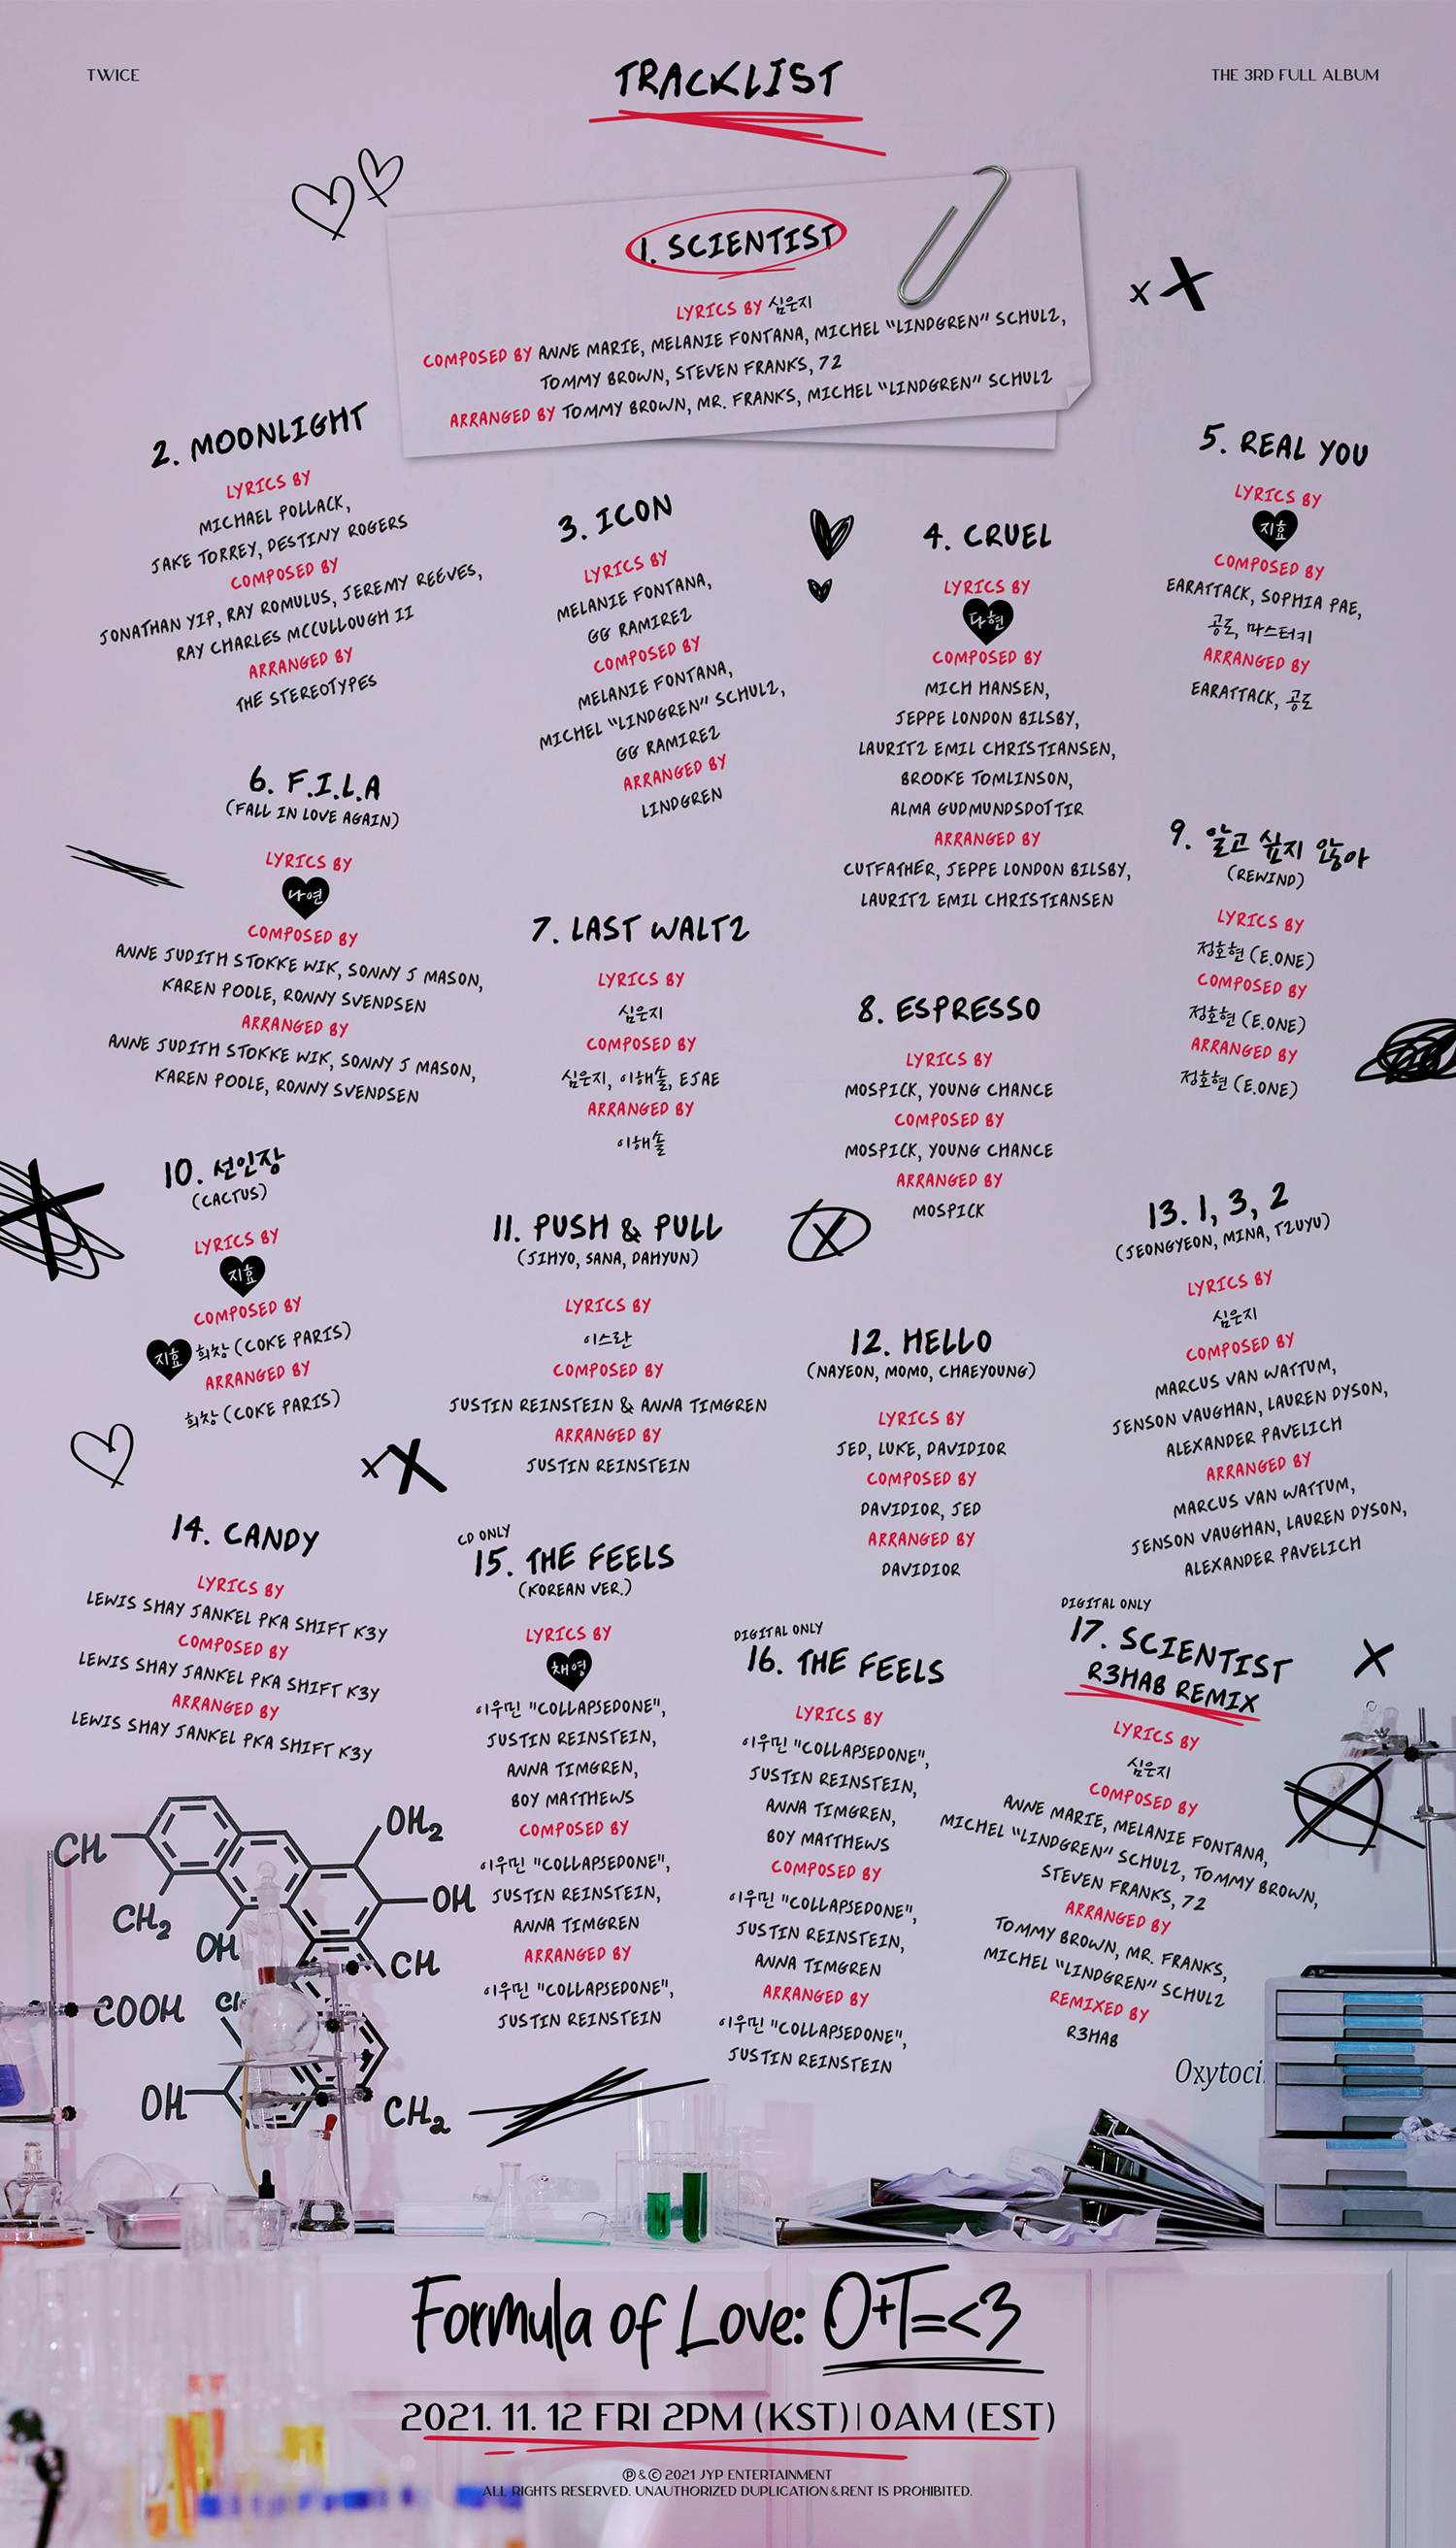 TWICE
TRACKLIST
THE 3RD FULL ALBUM
1. SCIENTIST
LYRICS BY 심은지
COMPOSED BY ANNE MARIE, MELANIE FONTANA, MICHEL "LINDGREN" SCHULZ,
TOMMY BROWN, STEVEN FRANKS, 72
ARRANGED BY TOMMY BROWN, MR. FRANKS, MICHEL "LINDGREN" SCHULZ
2. MOONLIGHT
LYRICS BY
MICHAEL POLLACK,
JAKE TORREY, DESTINY ROGERS
COMPOSED BY
JONATHAN YIP, RAY ROMULUS, JEREMY REEVES,
RAY CHARLES MCCULLOUGH II
ARRANGED BY
THE STEREOTYPES
3. ICON
LYRICS BY
MELANIE FONTANA,
GG RAMIREZ
COMPOSED BY
MELANIE FONTANA,
MICHEL "LINDGREN" SCHULZ,
GG RAMIREZ
ARRANGED BY
LINDGREN
4. CRUEL
LYRICS BY
다현
COMPOSED BY
MICH HANSEN,
JEPPE LONDON BILSBY,
LAURITZ EMIL CHRISTIANSEN,
BROOKE TOMLINSON,
ALMA GUDMUNDSDOTTIR
ARRANGED BY
CUTFATHER, JEPPE LONDON BILSBY,
LAURITZ EMIL CHRISTIANSEN
5. REAL YOU
LYRICS BY
지효
COMPOSED BY
EARATTACK, SOPHIA PAE,
공도, 마스터키
ARRANGED BY
EARATTACK, 공도
6. F.I.L.A
(FALL IN LOVE AGAIN)
LYRICS BY
나연
COMPOSED BY
ANNE JUDITH STOKKE WIK, SONNY J MASON,
KAREN POOLE, RONNY SVENDSEN
ARRANGED BY
ANNE JUDITH STOKKE WIK, SONNY J MASON,
KAREN POOLE, RONNY SVENDSEN
7. LAST WALTZ
LYRICS BY
심은지
COMPOSED BY
심은지, 이해솔, EJAE
ARRANGED BY
이해솔
8. ESPRESSO
LYRICS BY
MOSPICK, YOUNG CHANCE
COMPOSED BY
MOSPICK, YOUNG CHANCE
ARRANGED BY
MOSPICK
9. 알고 싶지 않아
(REWIND)
LYRICS BY
정호현 (E.ONE)
COMPOSED BY
정호현 (E.ONE)
ARRANGED BY
정호현 (E.ONE)
10. 선인장
(CACTUS)
LYRICS BY
지효
COMPOSED BY
지효 희창 (COKE PARIS)
ARRANGED BY
희창 (COKE PARIS)
11. PUSH & PULL
(JIHYO, SANA, DAHYUN)
LYRICS BY
이스란
COMPOSED BY
JUSTIN REINSTEIN & ANNA TIMGREN
ARRANGED BY
JUSTIN REINSTEIN
12. HELLO
(NAYEON, MOMO, CHAEYOUNG)
LYRICS BY
JED, LUKE, DAVIDIOR
COMPOSED BY
DAVIDIOR, JED
ARRANGED BY
DAVIDIOR
13. 1, 3, 2
(JEONGYEON, MINA, TZUYU)
LYRICS BY
심은지
COMPOSED BY
MARCUS VAN WATTUM,
JENSON VAUGHAN, LAUREN DYSON,
ALEXANDER PAVELICH
ARRANGED BY
MARCUS VAN WATTUM,
JENSON VAUGHAN, LAUREN DYSON,
ALEXANDER PAVELICH
14. CANDY
LYRICS BY
LEWIS SHAY JANKEL PKA SHIFT K3Y
COMPOSED BY
LEWIS SHAY JANKEL PKA SHIFT K3Y
ARRANGED BY
LEWIS SHAY JANKEL PKA SHIFT K3Y
CD ONLY
15. THE FEELS
(KOREAN VER.)
LYRICS BY
채영
이우민 "COLLAPSEDONE",
JUSTIN REINSTEIN,
ANNA TIMGREN,
BOY MATTHEWS
COMPOSED BY
이우민 "COLLAPSEDONE",
JUSTIN REINSTEIN,
ANNA TIMGREN
ARRANGED BY
이우민 "COLLAPSEDONE",
JUSTIN REINSTEIN
DIGITAL ONLY
16. THE FEELS
LYRICS BY
이우민 "COLLAPSEDONE",
JUSTIN REINSTEIN,
ANNA TIMGREN,
BOY MATTHEWS
COMPOSED BY
이우민 "COLLAPSEDONE",
JUSTIN REINSTEIN,
ANNA TIMGREN
ARRANGED BY
이우민 "COLLAPSEDONE",
JUSTIN REINSTEIN
DIGITAL ONLY
17. SCIENTIST
R3HAB REMIX
LYRICS BY
심은지
COMPOSED BY
ANNE MARIE, MELANIE FONTANA,
MICHEL "LINDGREN" SCHULZ, TOMMY BROWN,
STEVEN FRANKS, 72
ARRANGED BY
TOMMY BROWN, MR. FRANKS,
MICHEL "LINDGREN" SCHULZ
REMIXED BY
R3HAB
CH
OH2
CH2
OH
OH
CH
COOH
OH
CH2
Oxytoci
Formula of Love: O+T=<3
2021. 11. 12 FRI 2PM (KST) | 0AM (EST)
℗ & © 2021 JYP ENTERTAINMENT
ALL RIGHTS RESERVED. UNAUTHORIZED DUPLICATION & RENT IS PROHIBITED.